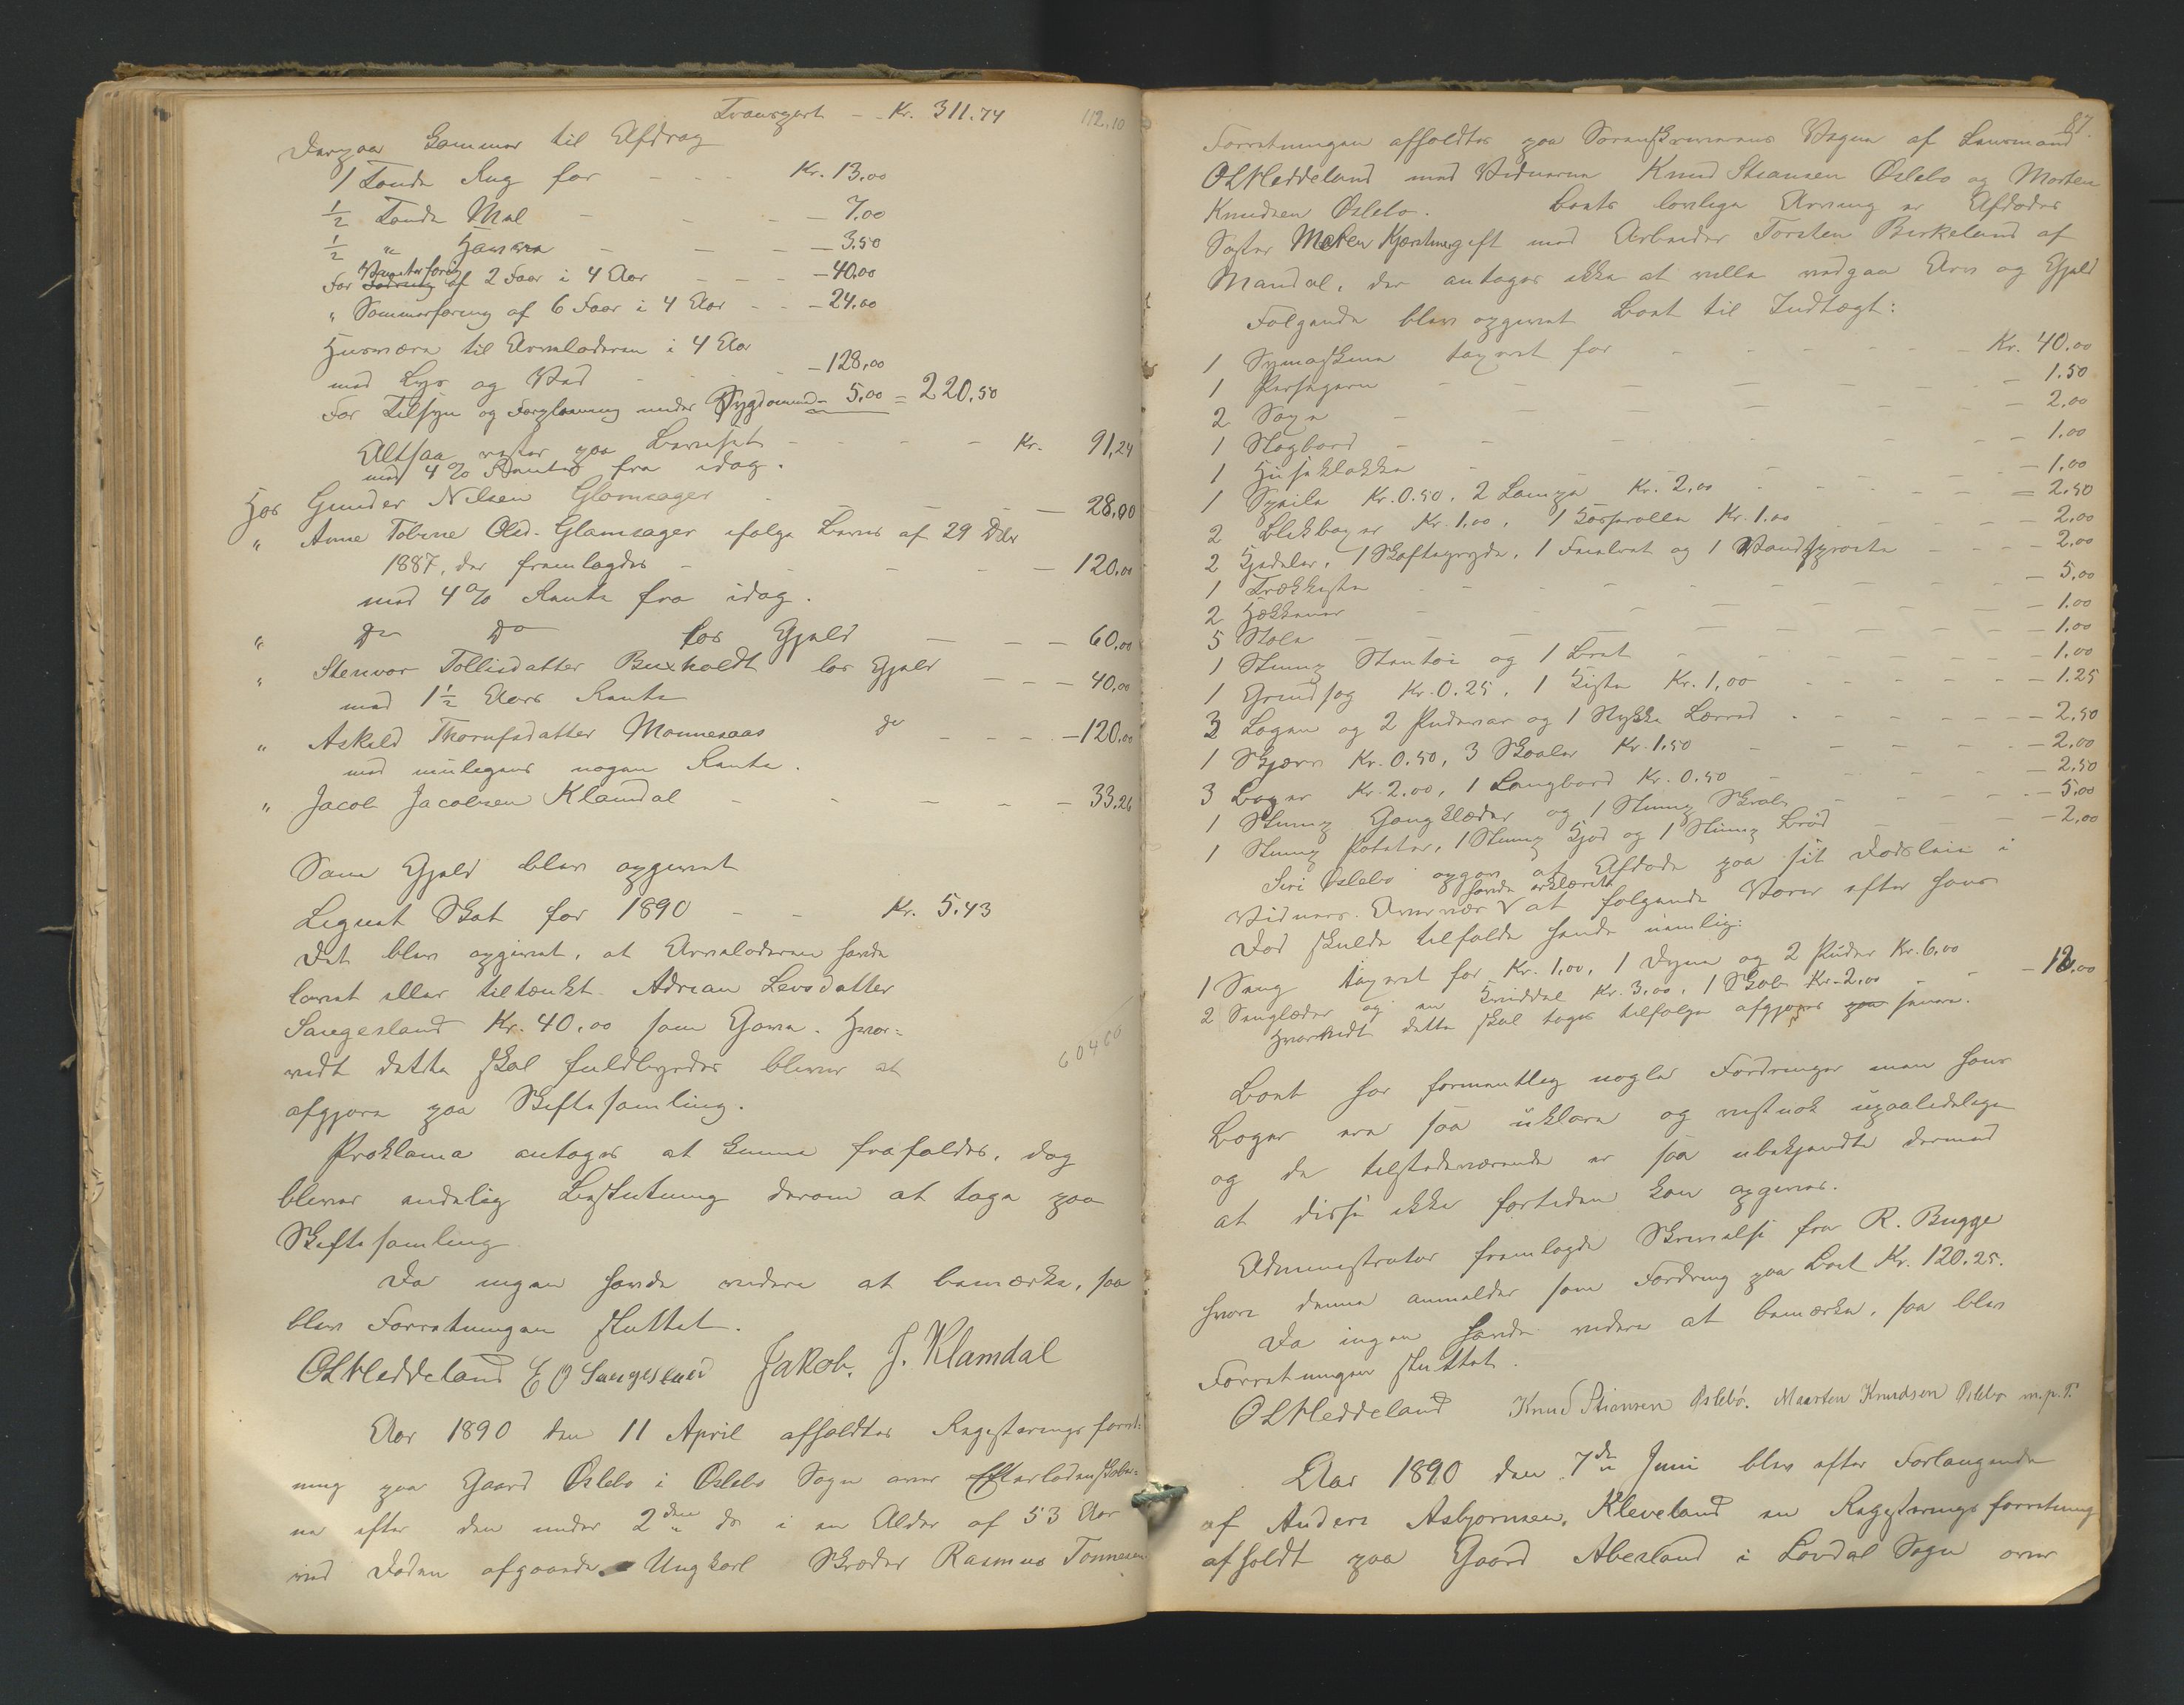 Transport - - Kr. 311.74
112.10
Derpaa kommer til Afdrag
1 Tønde Rug for - - - Kr. 13.00
½ Tønde Mel - - - - 7.00
½ " Havre - - - - 3.50
For Vinterforing af 2 Faar i 4 Aar - - - 40.00
" Sommerforing af 6 Faar i 4 Aar - - - 24.00
Husvære til Arveladeren i 4 Aar
med Lys og Ved - - - - 128,00
For Tilsyn og Forpleining under Sygdommen - 5.00 = 220.50
Altsaa rester paa Beviset - - - - Kr. 91,24
med 4% Rente fra idag.
Hos Gunder Nilsen Glomsager - - - - 28.00
" Anne Tobine Olsd. Glamsager ifølge Bevis af 29 Dbr
1887, der fremlagdes - - - - 120.00
med 4% Rente fra idag.
" Do Do løs Gjæld - - - 60.00
" Stenvor Tollisdatter Buxholdt løs Gjæld - - - 40,00
med 1½ Aars Rente
" Askild Thornfsdatter Monnesaas do - - - - 120.00
med muligens nogen Rente.
" Jacob Jacobsen Klamdal - - - - - 33.26
Som Gjæld blev opgivet
Lignet Skat for 1890 - - Kr. 5.43
Det blev opgivet, at Arveladeren havde
lovet eller tiltænkt Adrian Levsdatter
Saugesland Kr. 40,00 som Gave. Hvor-
vidt dette skal fuldbyrdes bliver at
afgjøre paa Skiftesamling.
60460
Proklama antages at kunne frafaldes, dog
bliver endelig Beslutning derom at tage paa
Skiftesamling
Da ingen havde videre at bemærke, saa
blev Forretningen sluttet.
OLHeddeland E O Saugesland Jakob. J. Klamdal
Aar 1890 den 11 April afholdtes Registreringsforret-
ning paa Gaard Øslebø i Øslebø Sogn over Efterladenskaber-
ne efter den under 2den ds i en Alder af 53 Aar
ved Døden afgaaede Ungkarl Skræder Rasmus Tønnesen.
87.
Forretningen afholdtes paa Sorenskriverens Vegne af Lensmand
OLHeddeland med Vidnerne Knud Stiansen Øslebø og Morten
Knudsen Øslebø. Boets lovlige Arving er Afdødes
Søster Maren Kjerstine gift med Arbeider Torsten Birkeland af
Mandal, der antages ikke at ville vedgaa Arv og Gjæld
Følgende blev opgivet Boet til Indtægt:
1 Symaskine taxeret for - - - - - Kr. 40.00
1 Persejern - - - - - - 1.50
2 Saxe - - - - - - 2.00
1 Slagbord - - - - - - 1.00
1 Huseklokke - - - - - - 1.00
1 Speile Kr. 0.50, 2 Lamper Kr. 2.00 - - - - - 2.50
2 Blikbøger Kr. 1.00, 1 Kaffemølle Kr. 1.00 - - - - 2.00
2 Kjedeler, 1 Skaftegryde, 1 Favlvat og 1 Vandsprøite - - - - 2.00
1 Trækkiste - - - - - - 5.00
2 Hækkener - - - - - - 1.00
5 Stole - - - - - - 1.00
1 Slump Stentøi og 1 Bret - - - - - 1.00
1 Grindsag Kr. 0.25, 1 Kiste Kr. 1,00 - - - - - 1.25
3 Lagen og 2 Pudevar og 1 Stykke Lærred - - - - - 2.50
1 Skjærv Kr. 0.50, 3 Skaaler Kr. 1.50 - - - - - 2.00
3 Bøger Kr. 2.00, 1 Langbord Kr. 0.50 - - - - - 2.50
1 Slump Gangklæder og 1 Slump Skrab - - - - 5.00
1 Slump Poteter, 1 Slump Kjød og 1 Slump Brød - - - 2,00
Siri Øslebø opgav at Afdøde paa sit Dødsleie i
Vidners Overvær havde erklæret at følgende Varer efter hans
Død skulde tilfalde hende nemlig:
1 Seng taxeret for Kr. 1,00, 1 Dyne og 2 Puder Kr. 6,00
2 Senglæder og en Kviddel Kr. 3,00, 1 Skab Kr. 2.00 - - - 12.00
Hvorvidt dette skal tages tilfølge afgjøres senere.
Boet har formentlig nogle Fordringer men hans
Bøger ere saa uklare og vistnok upaalidelige
og de tilstedeværende er saa ubekjendte dermed
at disse ikke fortiden kan opgives.
Administrator fremlagde Skrivelse fra R. Bugge
hvori denne anmelder som Fordring paa Boet Kr. 120.25.
Da ingen havde videre at bemærke, saa blev
Forretningen sluttet.
OLHeddeland Knud Stiansen Øslebø. Maarten Knudsen Øslebø m.p.P.
Aar 1890 den 7de Juni blev efter Forlangende
af Anders Asbjørnsen, Kleveland en Registreringsforretning
afholdt paa Gaard Abesland i Løvdal Sogn over